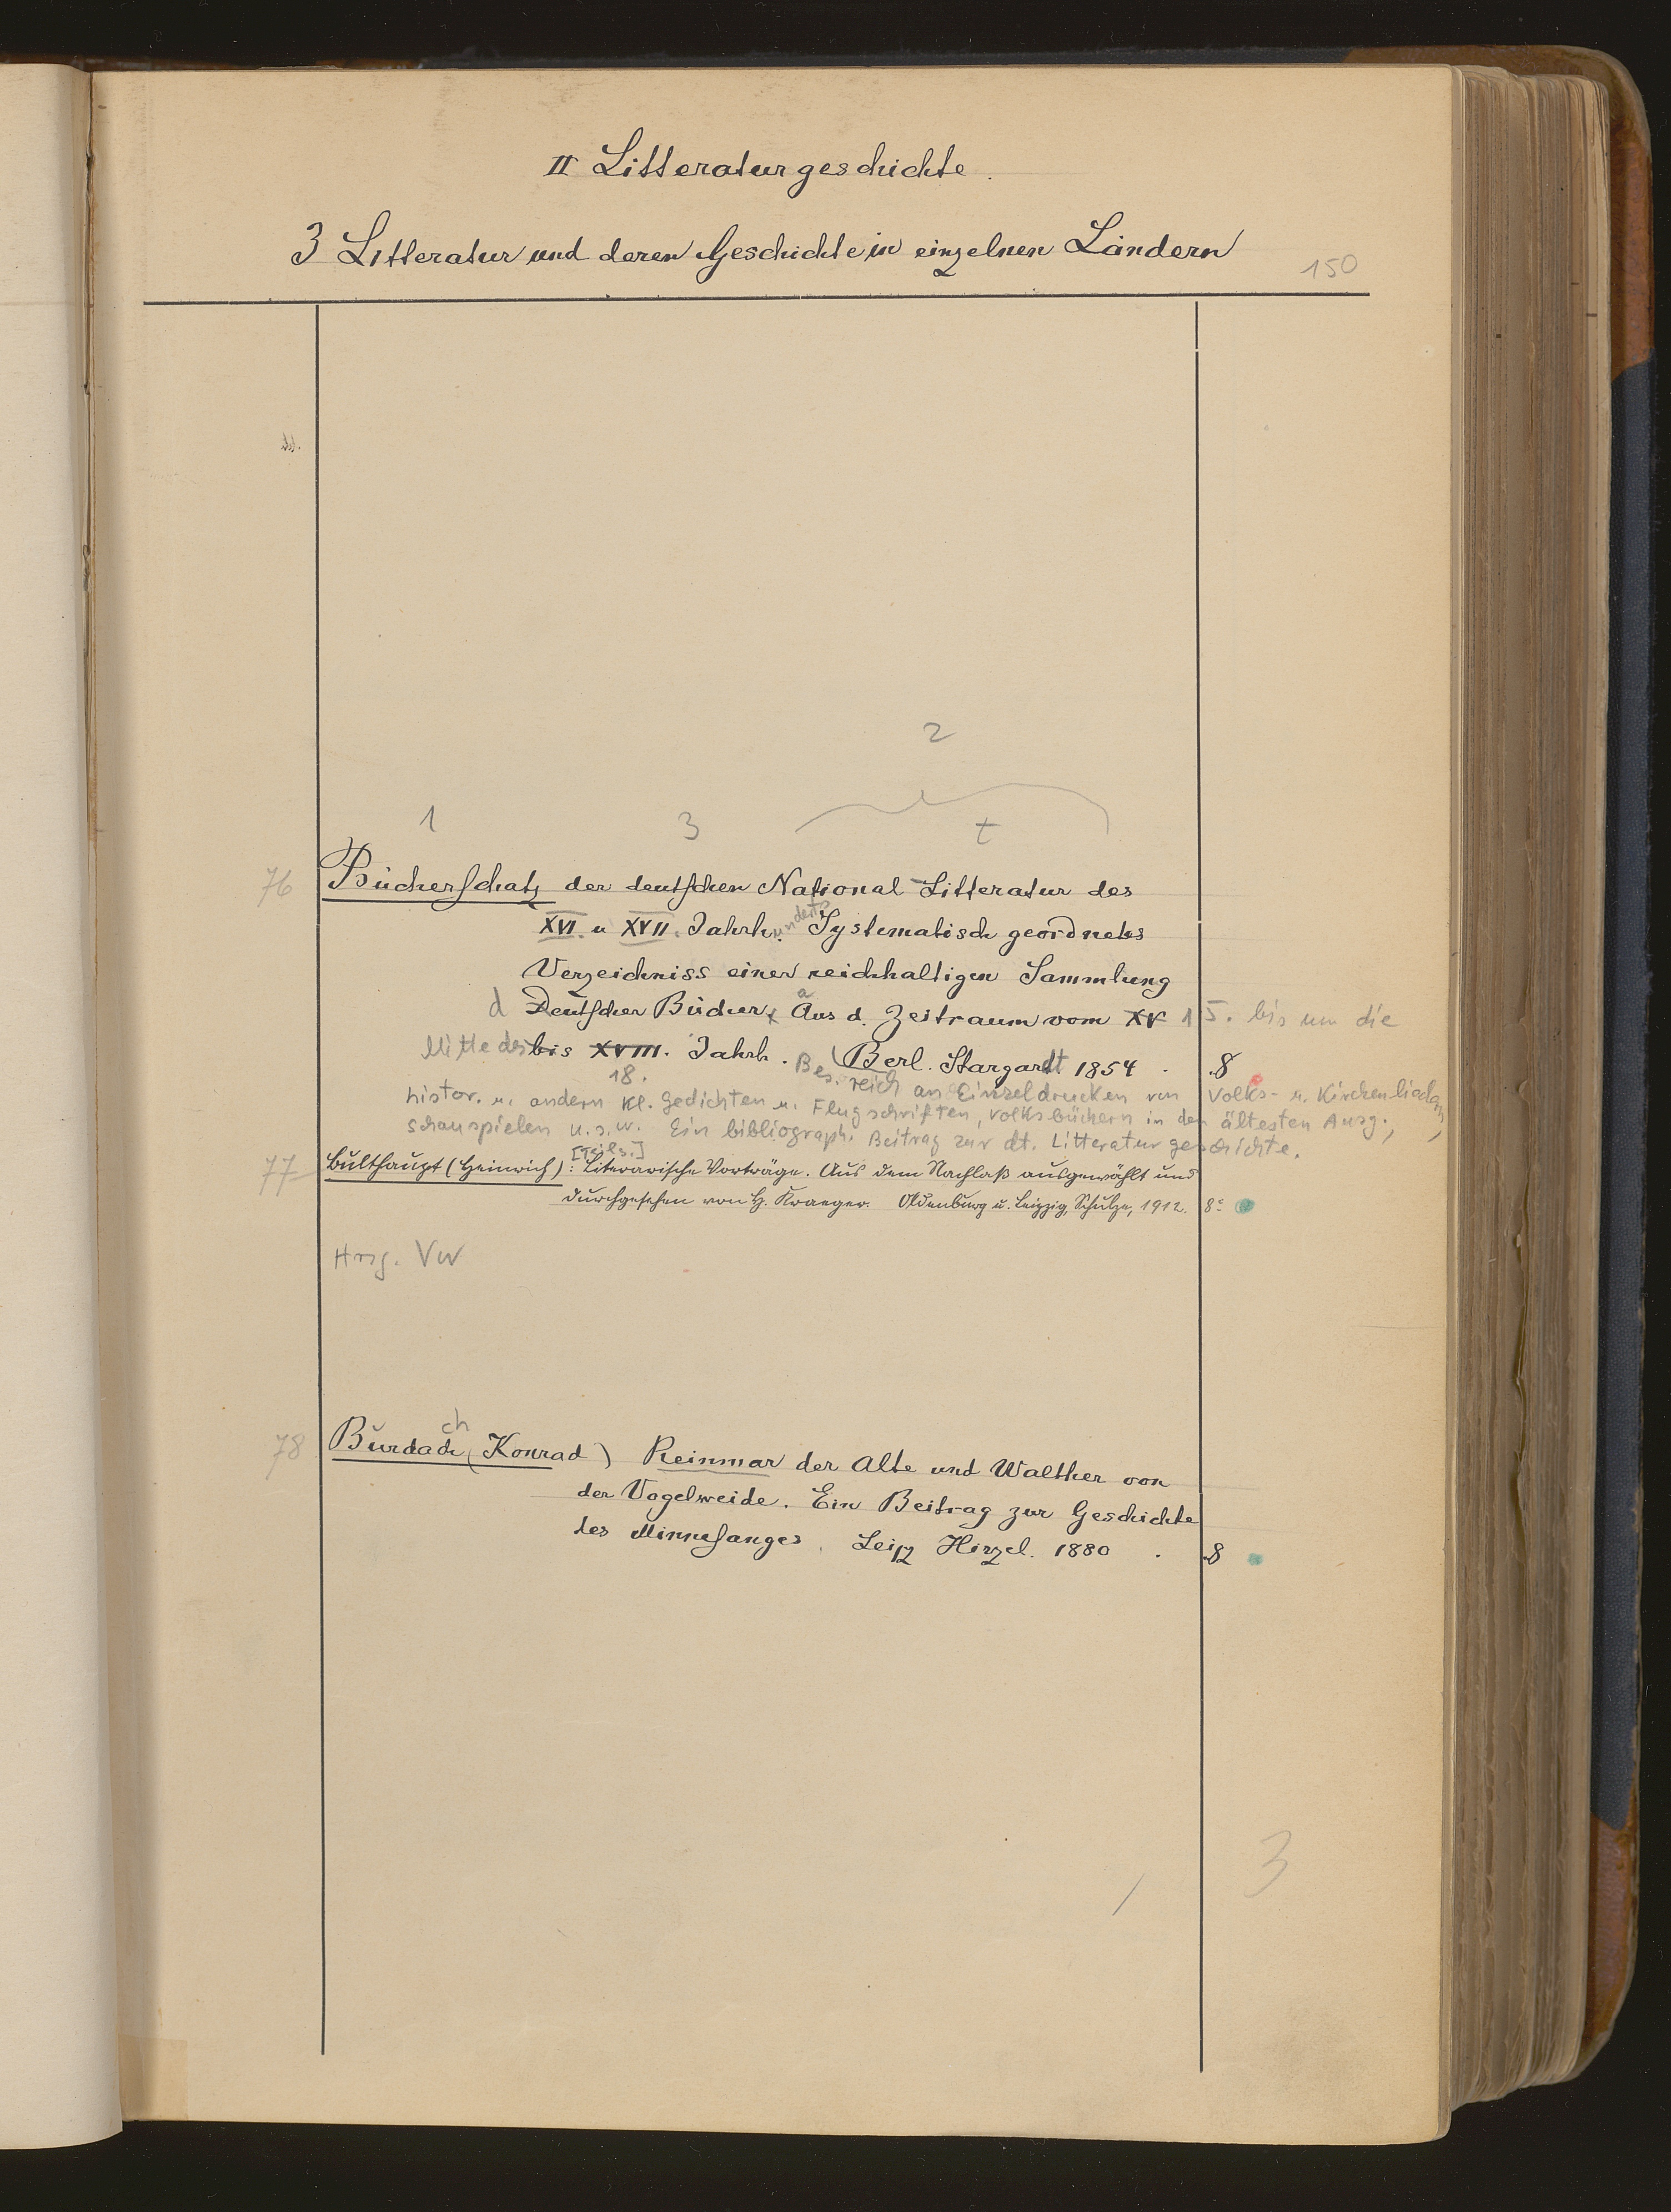 II Litteraturgeschichte.
3 Litteratur und deren Geschichte in einzelnen Ländern
150
2
1 3 t
76 Bücherschatz der deutschen National-Litteratur des
XVI. u XVII. Jahrhunderts. Systematisch geordnetes
Verzeichniss einer reichhaltigen Sammlung
d Deutscher Bücher, a Aus d. Zeitraum vom XV 15. bis um die
Mitte des bis XVIII. Jahrh. (Berl. Stargardt 1854 . 8
18. Bes. reich an Einzeldrucken von Volks- u. Kirchenliedern,
histor. u. andern kl. Gedichten u. Flugschriften, Volksbüchern in den ältesten Ausg.,
Schauspielen u.s.w. Ein bibliograph. Beitrag zur dt. Litteraturgeschichte.
[Teils.]
77 Bulthaupt (Heinrich): Literarische Vorträge. Aus dem Nachlaß ausgewählt und
durchgesehen von H. Kraeger. Oldenburg u. Leipzig, Schulze, 1912. 8°
Hrsg. VW
ch
78 Burdach (Konrad) Reinmar der Alte und Walther von
der Vogelweide. Ein Beitrag zur Geschichte
des Minnesanges. Leipz Hirzel. 1880 . 8
3